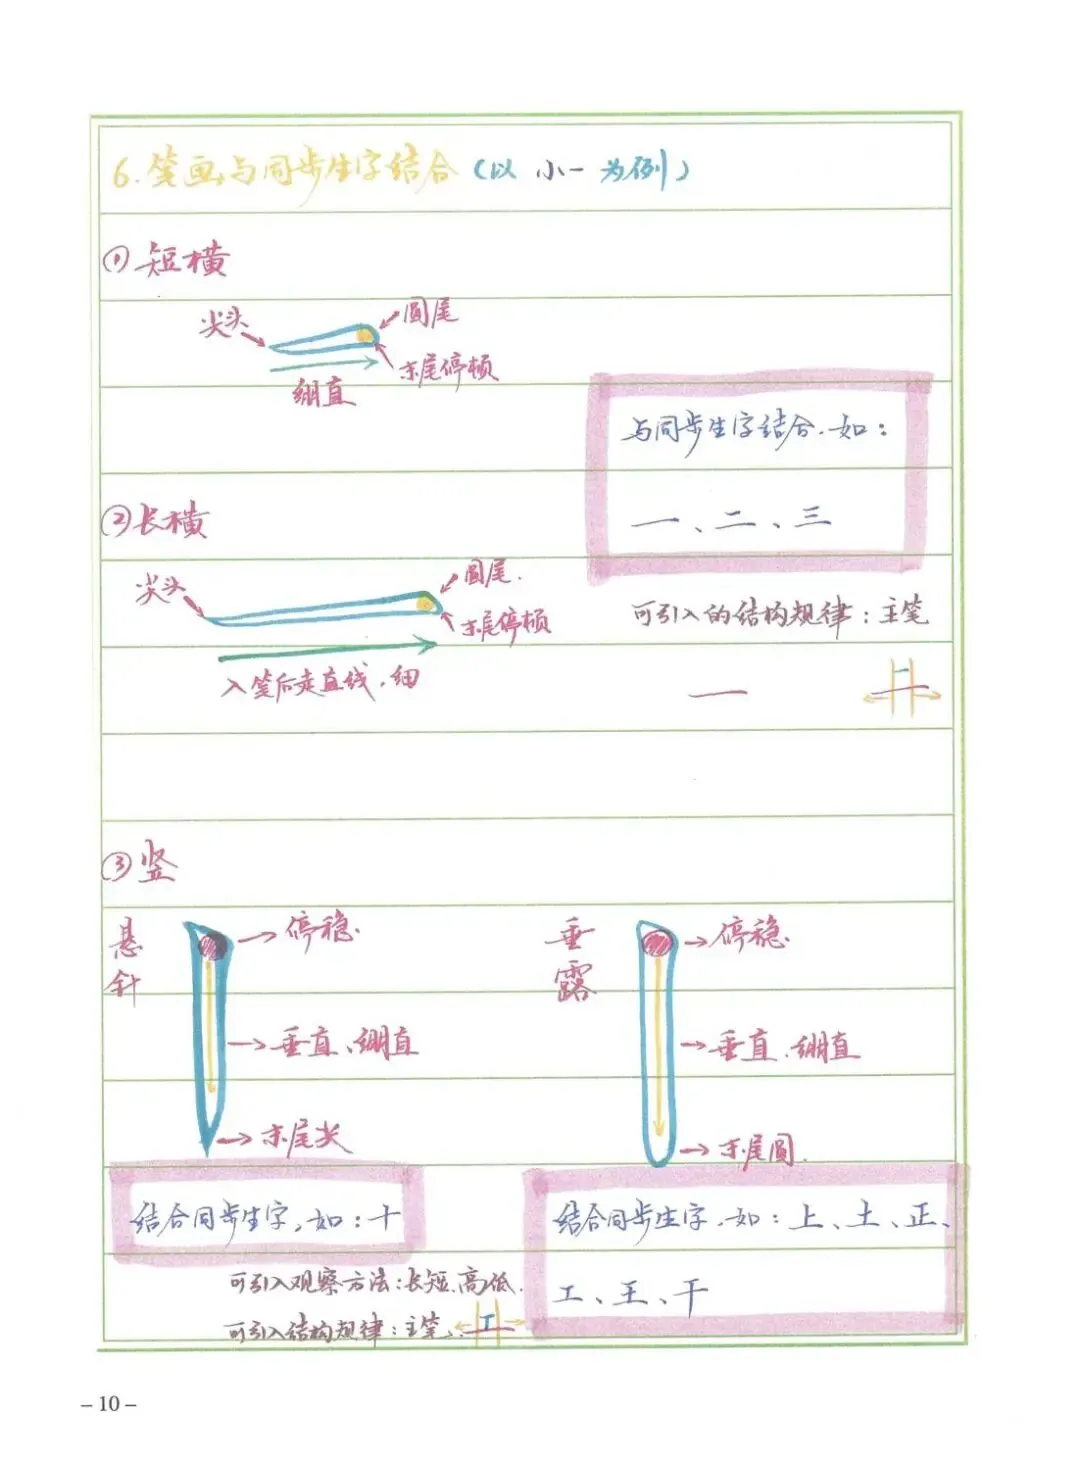 6.笔画与同步生字结合(以 小一 为例)
①短横
尖头
圆尾
末尾停顿
绷直
与同步生字结合.如:
一、二、三
②长横
尖头
圆尾.
末尾停顿
入笔后走直线.细
可引入的结构规律:主笔
一
③竖
悬针
停稳.
垂直、绷直
末尾尖
垂露
停稳.
垂直.绷直
末尾圆.
结合同步生字,如:十
结合同步生字.如:上、土、正、
工、王、干
可引入观察方法:长短.高低.
可引入结构规律:主笔.
工
–10–